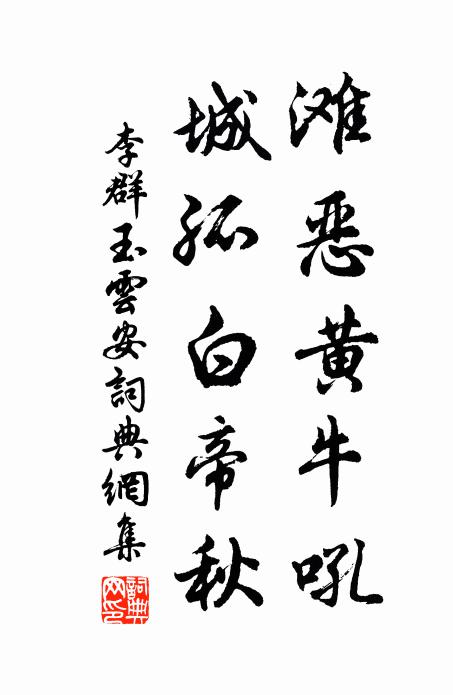 滩恶黄牛吼
城孤白帝秋
李群玉雲安詞典網集
詞典网印